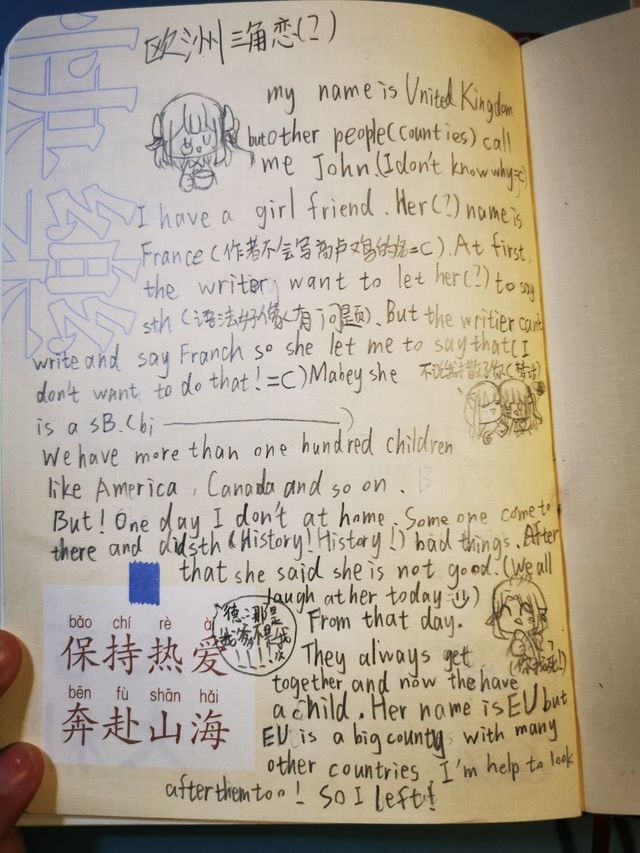 欧洲三角恋(?)
my name is United Kingdom
but other people(counties) call
me John.(I don't know why=C)
I have a girl friend. Her(?) name is
France(作者不会写高卢鸡的法=C). At first,
the writer want to let her(?) to say
sth(语法好像有问题). But the writier can't
write and say Franch so she let me to say that(I
don't want to do that!=C) Mabey she
is a sB.(bi——)
We have more than one hundred children
like America, Canada and so on.
But! One day I don't at home. Some one come to
there and did sth(History! History!) bad things. After
that she said she is not good.(We all
laugh at her today)
From that day.
They always get
together and now the have
a child. Her name is EU but
EU is a big county with many
other countries I'm help to look
after them too! So I left!
德:那是
!!!!
bǎo chí rè ài
保持热爱
bēn fù shān hǎi
奔赴山海